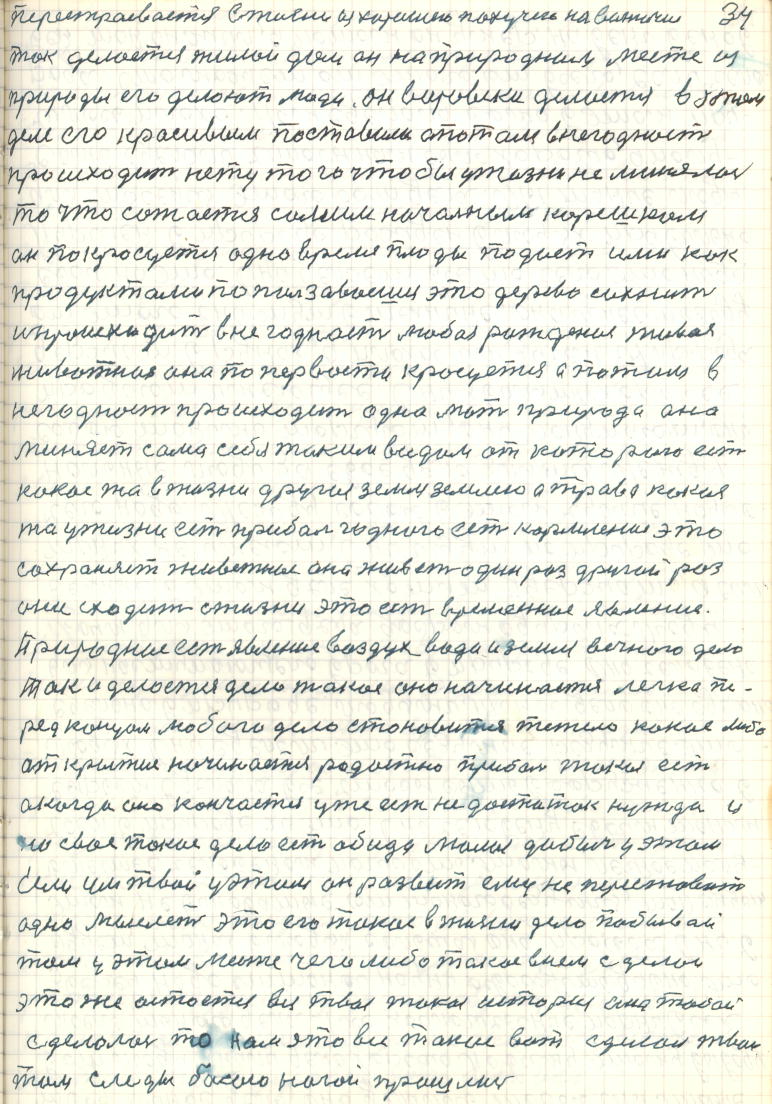 перестраевается стоями из хорошею получен на ваничи 34
так делается жилой дом он на природним месте из
природы его делают люди. он вировеки делается в этом
деле его красивым поставили а потом внегодност
происходит нету того чтобы ужизни не минялос
то что сожается самим началным корешком
он покросуется одно время плоды подаст ими как
продуктами попользавоеши это дерево сихнит
ипроисходит внегодност любая рождения живая
животная она по первости кросуется а потим в
негодност происходит одна мат природа она
миняет сама себя таким видом от которого ест
какое та в жизни другия земля землею а трава какая
та ужизни ест прибал годного ест кормление это
сохраняет животные она живет один раз другой раз
они сходит сжизни это ест временное явление.
Природние ест явление воздух вода и земля вечного дело
Так и делается дело такое оно начинается легка пе-
ред концом любого дело становится тежело какое либо
аткрытие начинается радостно прибал такая ест
акогда оно кончается уже ест недостаток нужда и
на свое такое дело ест обида малая добыч у этом
Если ум твой уэтом он развит ему не перестоват
одно мыслет это его такое вжизни дело побывай
там у этом меже чего либо такое внем сделай
это же остоется вся твоя такая история она тобой
сделолас то нам ято все такое вот сделал твои
там следы босого ногой прошли